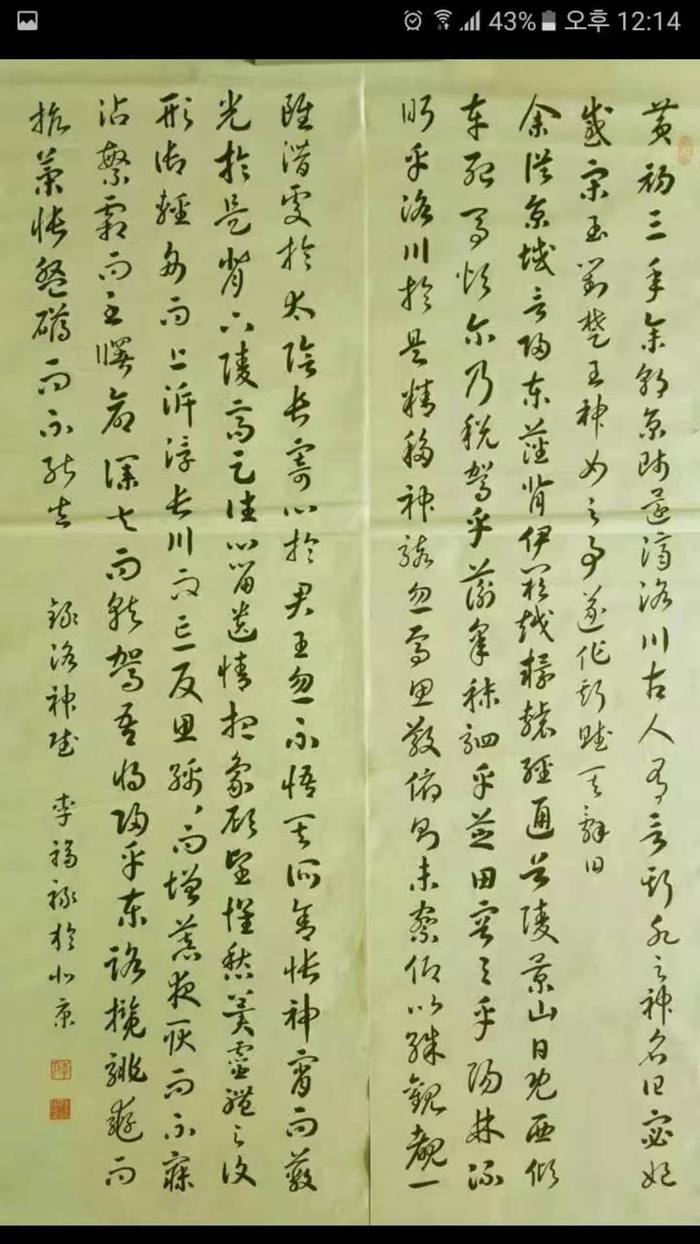 43% 오후 12:14
黃初三年余朝京師還濟洛川古人有言斯水之神名曰宓妃
感宋玉對楚王神女之事遂作斯賦其辭曰
余從京域言歸東藩背伊闕越轘轅經通谷陵景山日既西傾
車殆馬煩爾乃稅駕乎蘅皋秣駟乎芝田容與乎陽林流
眄乎洛川於是精移神駭忽焉思散俯則未察仰以殊觀覩一
雖潛處於太陰長寄心於君王忽不悟其所舍悵神宵而蔽
光於是背下陵高足往心留遺情想象顧望懷愁冀靈體之復
形御輕舟而上泝浮長川而忘反思綿々而增慕夜耿而不寐
沾繁霜而至曙命僕夫而就駕吾將歸乎東路攬騑轡而
抗策悵盤桓而不能去
錄洛神賦 李福祿於北京